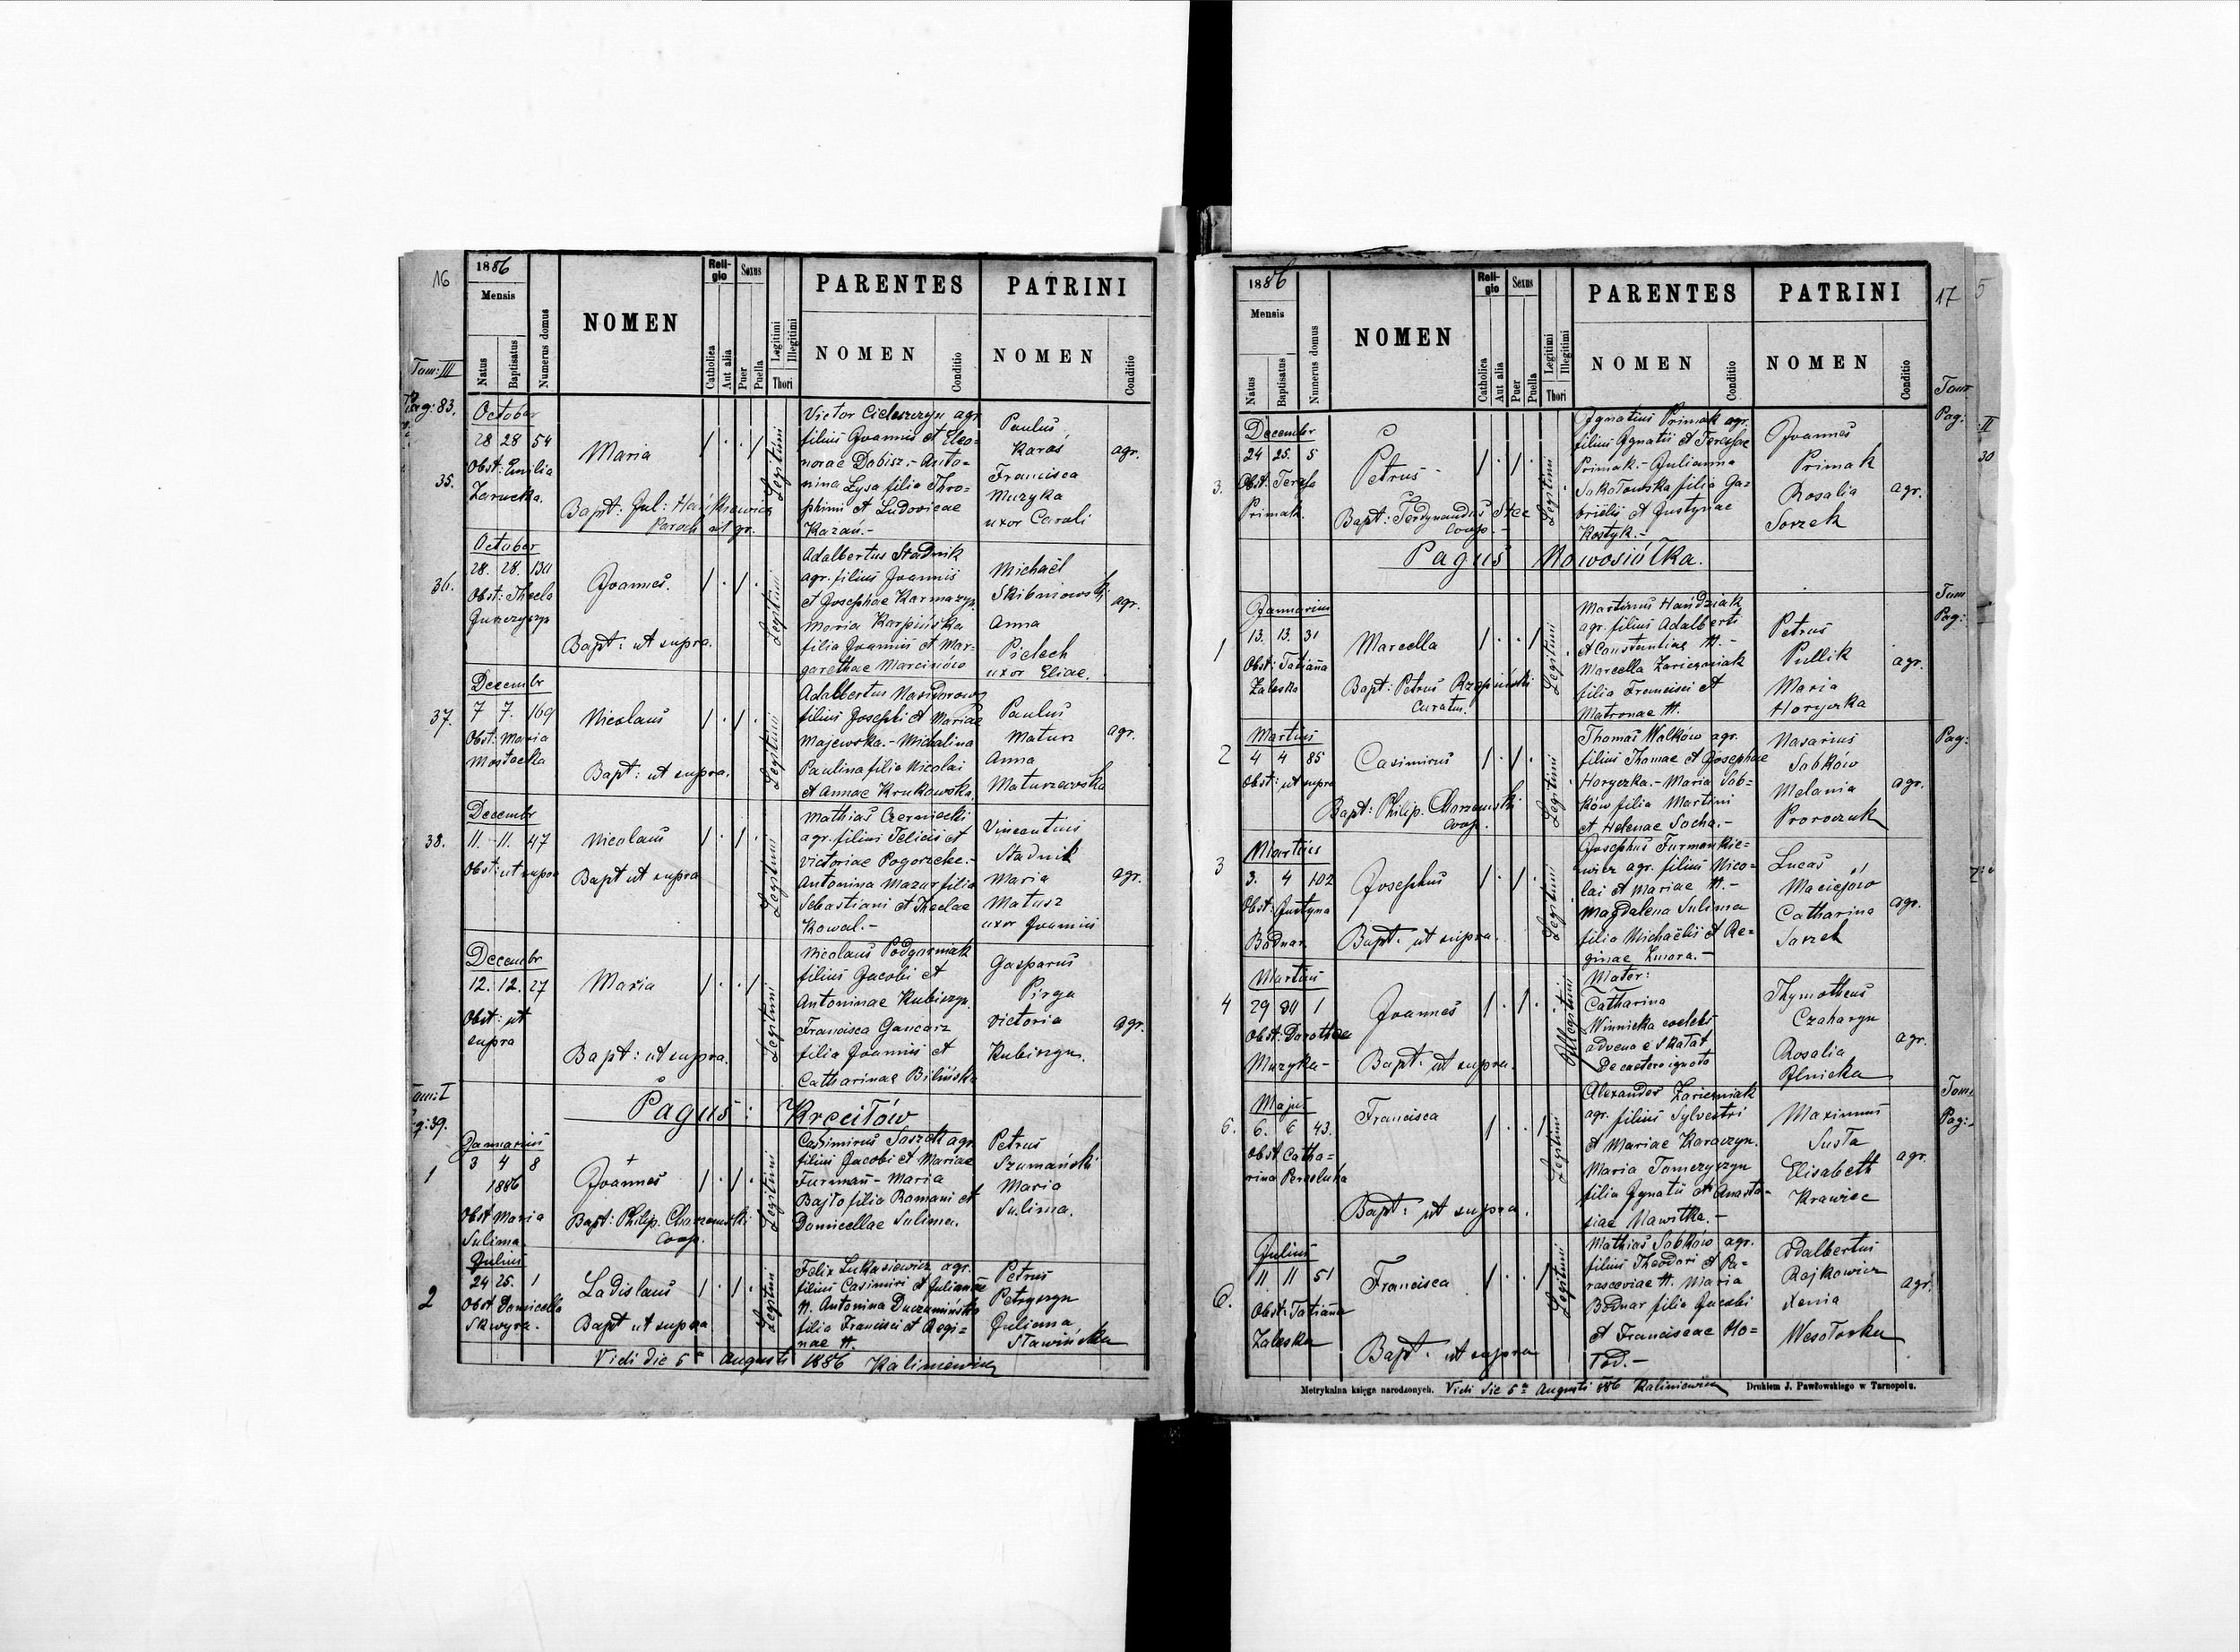 16
1886
Mensis
Natus
Baptisatus
Numerus domus
NOMEN
Religio
Catholica
Aut alia
Sexus
Puer
Puella
Legitimi
Illegitimi
Thori
PARENTES
NOMEN
Conditio
PATRINI
NOMEN
Conditio
Tom: III
Pag: 83.
35.
October
28 28 54
Obst: Emilia
Zarucka.
Maria
Bapt: Jul:
Paroch
Legitimi
Victor Cieleszczyn agr.
filius Joannis et Eleo-
norae Dobisz.- Anto-
nina Lysa filia Thro-
phimi et Ludovicae
Kazań.-
Paulus
Karaś
Francisca
Muzyka
uxor Caroli
agr.
36.
October
28. 28. 130
Obst: Thecla
Jurczyszyn
Joannes.
Bapt: ut supra.
Legitimi
Adalbertus Stadnik
agr. filius Joannis
et Josephae Karmazyn
Maria Karpińska
filia Joannis et Mar-
garethae Marciniów
Michaël
Skibniowski
Anna
Pielech
uxor Eliae.
agr.
37.
Decembr
7 7. 169
Obst: Maria
Nicolaus
Bapt: ut supra.
Legitimi
Adalbertus
filius Josephi et Mariae
Majewska.- Michalina
Paulina filia Nicolai
et Annae Krukowska.
Paulus
Matusz
Anna
Matuszewska
agr.
38.
Decembr
11. 11. 47
Obst: ut supra
Nicolaus
Bapt ut supra
Legitimi
Mathias Czerniecki
agr. filius Felicis et
Victoriae
Antonina Mazur filia
Sebastiani et Theclae
Kowal.-
Vincentius
Stadnik
Maria
Matusz
uxor Joannis
agr.
Decembr
12. 12. 27
Obst: ut
supra
Maria
Bapt: ut supra.
Legitimi
Nicolaus Podgorniak
filius Jacobi et
Antoninae Kubiszyn.
Francisca Gancarz
filia Joannis et
Catharinae Bilińska
Gasparus
Pirga
Victoria
Kubiszyn.
agr.
Tom: I
Pag: 39.
Pagus: Krcitów
1
Januarius
3 4 8
1886
Obst Maria
Sulima
Joannes
Bapt: Philip.
Coop.
Legitimi
Casimirus Saszek agr.
filius Jacobi et Mariae
Furman - Maria
Bajto filia Romani et
Domicellae Sulima.
Petrus
Szumański
Maria
Sulima.
2
Julius
24 25. 1
Obst. Domicella
Skwyra.
Ladislaus
Bapt ut supra
Legitimi
Felix Lukasiewicz agr.
filius Casimiri et Julianae
N. Antonina
filia Francisci et Regi-
nae N.
Petrus
Petryszyn
Juliana
Sławińska
Vidi die 5ta Augusti 1886 Kaliniewicz
17
1886
Mensis
Natus
Baptisatus
Numerus domus
NOMEN
Religio
Catholica
Aut alia
Sexus
Puer
Puella
Legitimi
Illegitimi
Thori
PARENTES
NOMEN
Conditio
PATRINI
NOMEN
Conditio
Tom
Pag:
3.
Decembr
24 25. 5
Obst: Teresa
Primak.
Petrus
Bapt: Ferdynandus
Coop.-
Legitimi
Ignatius Primak agr.
filius Ignatii et Teresae
Primak.- Julianna
Sakołowska filia Ga-
briëlis et Justynae
Kostyk.-
Joannes
Primak
Rosalia
Sorzek
agr.
Pagus Nowosiółka.
Tom
Pag:
1
Januarius
13. 13. 31
Obst: Tatiana
Zaleska
Marcella
Bapt: Petrus
Curatus.
Legitimi
Martinus Hańdziak
agr. filius Adalberti
et Constantiae N.-
Marcella Zarieczniak
filia Francisci et
Matronae N.
Petrus
Pullik
Maria
Horyczka
agr.
Pag:
2
Martius
4 4 85
Obst: ut supra
Casimirus
Bapt: Philip.
Coop.
Legitimi
Thomas Walków agr.
filius Thomae et Josephae
Horyczka.- Maria Sob-
ków filia Martini
et Helenae Socha.-
Nasarius
Sobków
Melania
Proroczuk
agr.
3
Martius
3. 4 102
Obst: Justyna
Bodnar
Josephus
Bapt. ut supra.
Legitimi
Josephus Furmankie-
wicz agr. filius Nico-
lai et Mariae N.-
Magdalena Sulima
filia Michaëlis et Re-
ginae Zmora.-
Lucas
Maciejów
Catharina
Sorzek
agr.
4
Martius
29 30 1
Obst: Dorothea
Muzyka-
Joannes
Bapt. ut supra.
Illegitimi
Mater:
Catharina
Winnicka coelebs
advena e Skałat
De caetero ignota
Thymotheus
Czaharyn
Rosalia
Ilnicka
agr.
Tom.
Pag:
5.
Majus
6. 6 43.
Obst Catha-
rina
Francisca
Bapt: ut supra.
Legitimi
Alexander Zarieczniak
agr. filius Sylvestri
et Mariae Karaczyn.
Maria Tomczyszyn
filia Ignatii et Anasta-
siae Nawitka.-
Maximus
Susła
Elisabeth
Krawiec
agr.
6.
Julius
11 11 51
Obst: Tatiana
Zaleska
Francisca
Bapt. ut supra
Legitimi
Mathias Sobków agr.
filius Theodori et Pa-
rasceviae N. Maria
Bodnar filia Jacobi
et Franciscae Ho-
łod.-
Adalbertus
Rajkowicz
Xenia
Wesołowska
agr.
Metrykalna księga narodzonych.
Vidi die 5ta Augusti 886 Kaliniewicz
Drukiem J. Pawłowskiego w Tarnopolu.